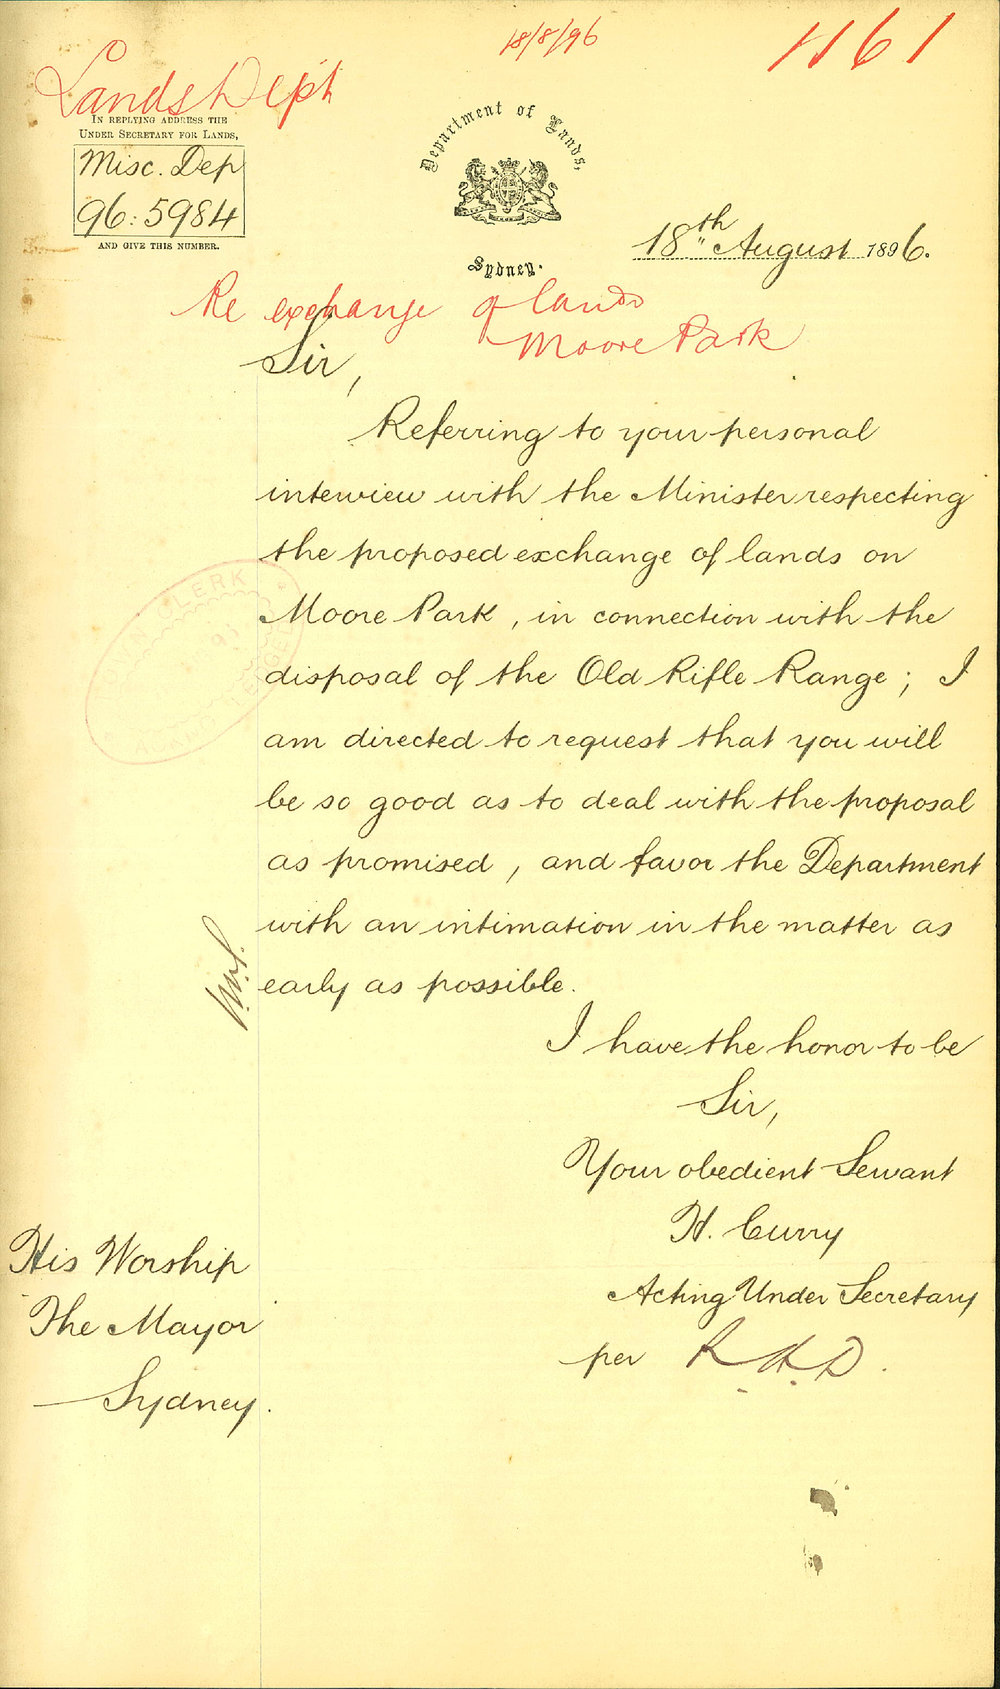 18/8/96
1161
Lands Dept
IN REPLYING ADDRESS THE
UNDER SECRETARY FOR LANDS,
Misc. Dep
96:5984
AND GIVE THIS NUMBER.
Department of Lands,
Sydney.
18th August 1896.
Re exchange of lands
Moore Park
Sir,
Referring to your personal
interview with the Minister respecting
the proposed exchange of lands on
Moore Park, in connection with the
disposal of the Old Rifle Range; I
am directed to request that you will
be so good as to deal with the proposal
as promised, and favor the Department
with an intimation in the matter as
early as possible.
I have the honor to be
Sir,
Your obedient Servant
H. Curry
Acting Under Secretary
per R.H.D.
His Worship
The Mayor
Sydney.
CLERK